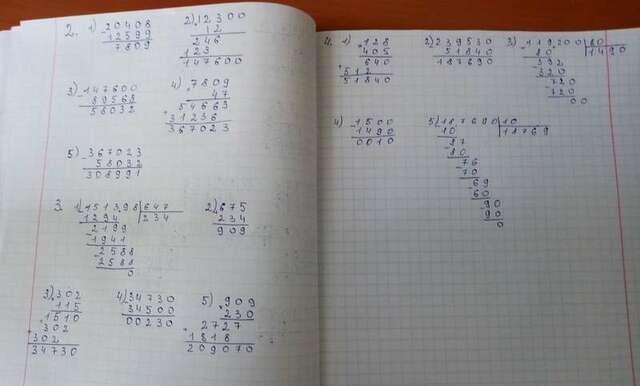 2. 1) -20408
12599
7809
2) 12300
12
246
123
147600
3) -147600
89568
58032
4) 7809
47
54663
31236
367023
5) -367023
58032
308991
3. 1) 151398 | 647
1294 | 234
-2199
1941
-2588
2588
0
2) 675
234
909
3) 302
115
1510
302
302
34730
4) -34730
34500
00230
5) 909
230
2727
1818
209070
4. 1) 128
405
640
512
51840
2) 239530
51840
187690
3) -119200 | 80
80 | 1490
392
-320
720
-720
00
4) -1500
1490
0010
5) -187690 | 10
10 | 18769
-87
80
-76
70
-69
60
-90
90
0